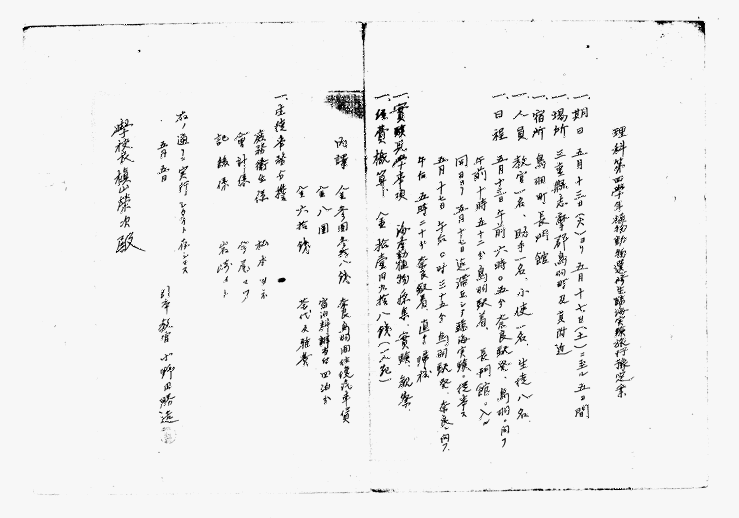 理科第四學年植物動物選修生臨海實驗旅行豫定案
一、期日 五月十三日(火)ヨリ五月十七日(土)ニ至ル五日間
一、場所 三重縣志摩郡鳥羽町及其附近
一、宿所 鳥羽町長門館
一、人員 教官一名、助手一名、小使一名、生徒八名
一、日程 五月十三日午前六時〇五分奈良驛發、鳥羽ニ向フ
午前十時五十二分鳥羽驛着、長門館ニ入ル
同日ヨリ五月十七日迄滯在シテ臨海實驗ニ從事ス
五月十七日午后〇時三十五分鳥羽驛發、奈良ニ向フ
午后五時二十分奈良驛着、直チニ歸校
一、實驗見學事項 海産動植物採集、實驗、觀察
一、經費概算 金拾壹円九拾八錢(一人宛)
內譯 金參円參拾八錢 奈良鳥羽間往復汽車賃
金八円 宿泊料辨當代四泊分
金六拾錢 茶代及雜費
一、生徒事務分擔
庶務衛生係 松本ツネ
會計係
記錄係
右ノ通リ實行シタク存シマス
五月五日
引率教官 小野田勝造
學校長槇山榮次殿